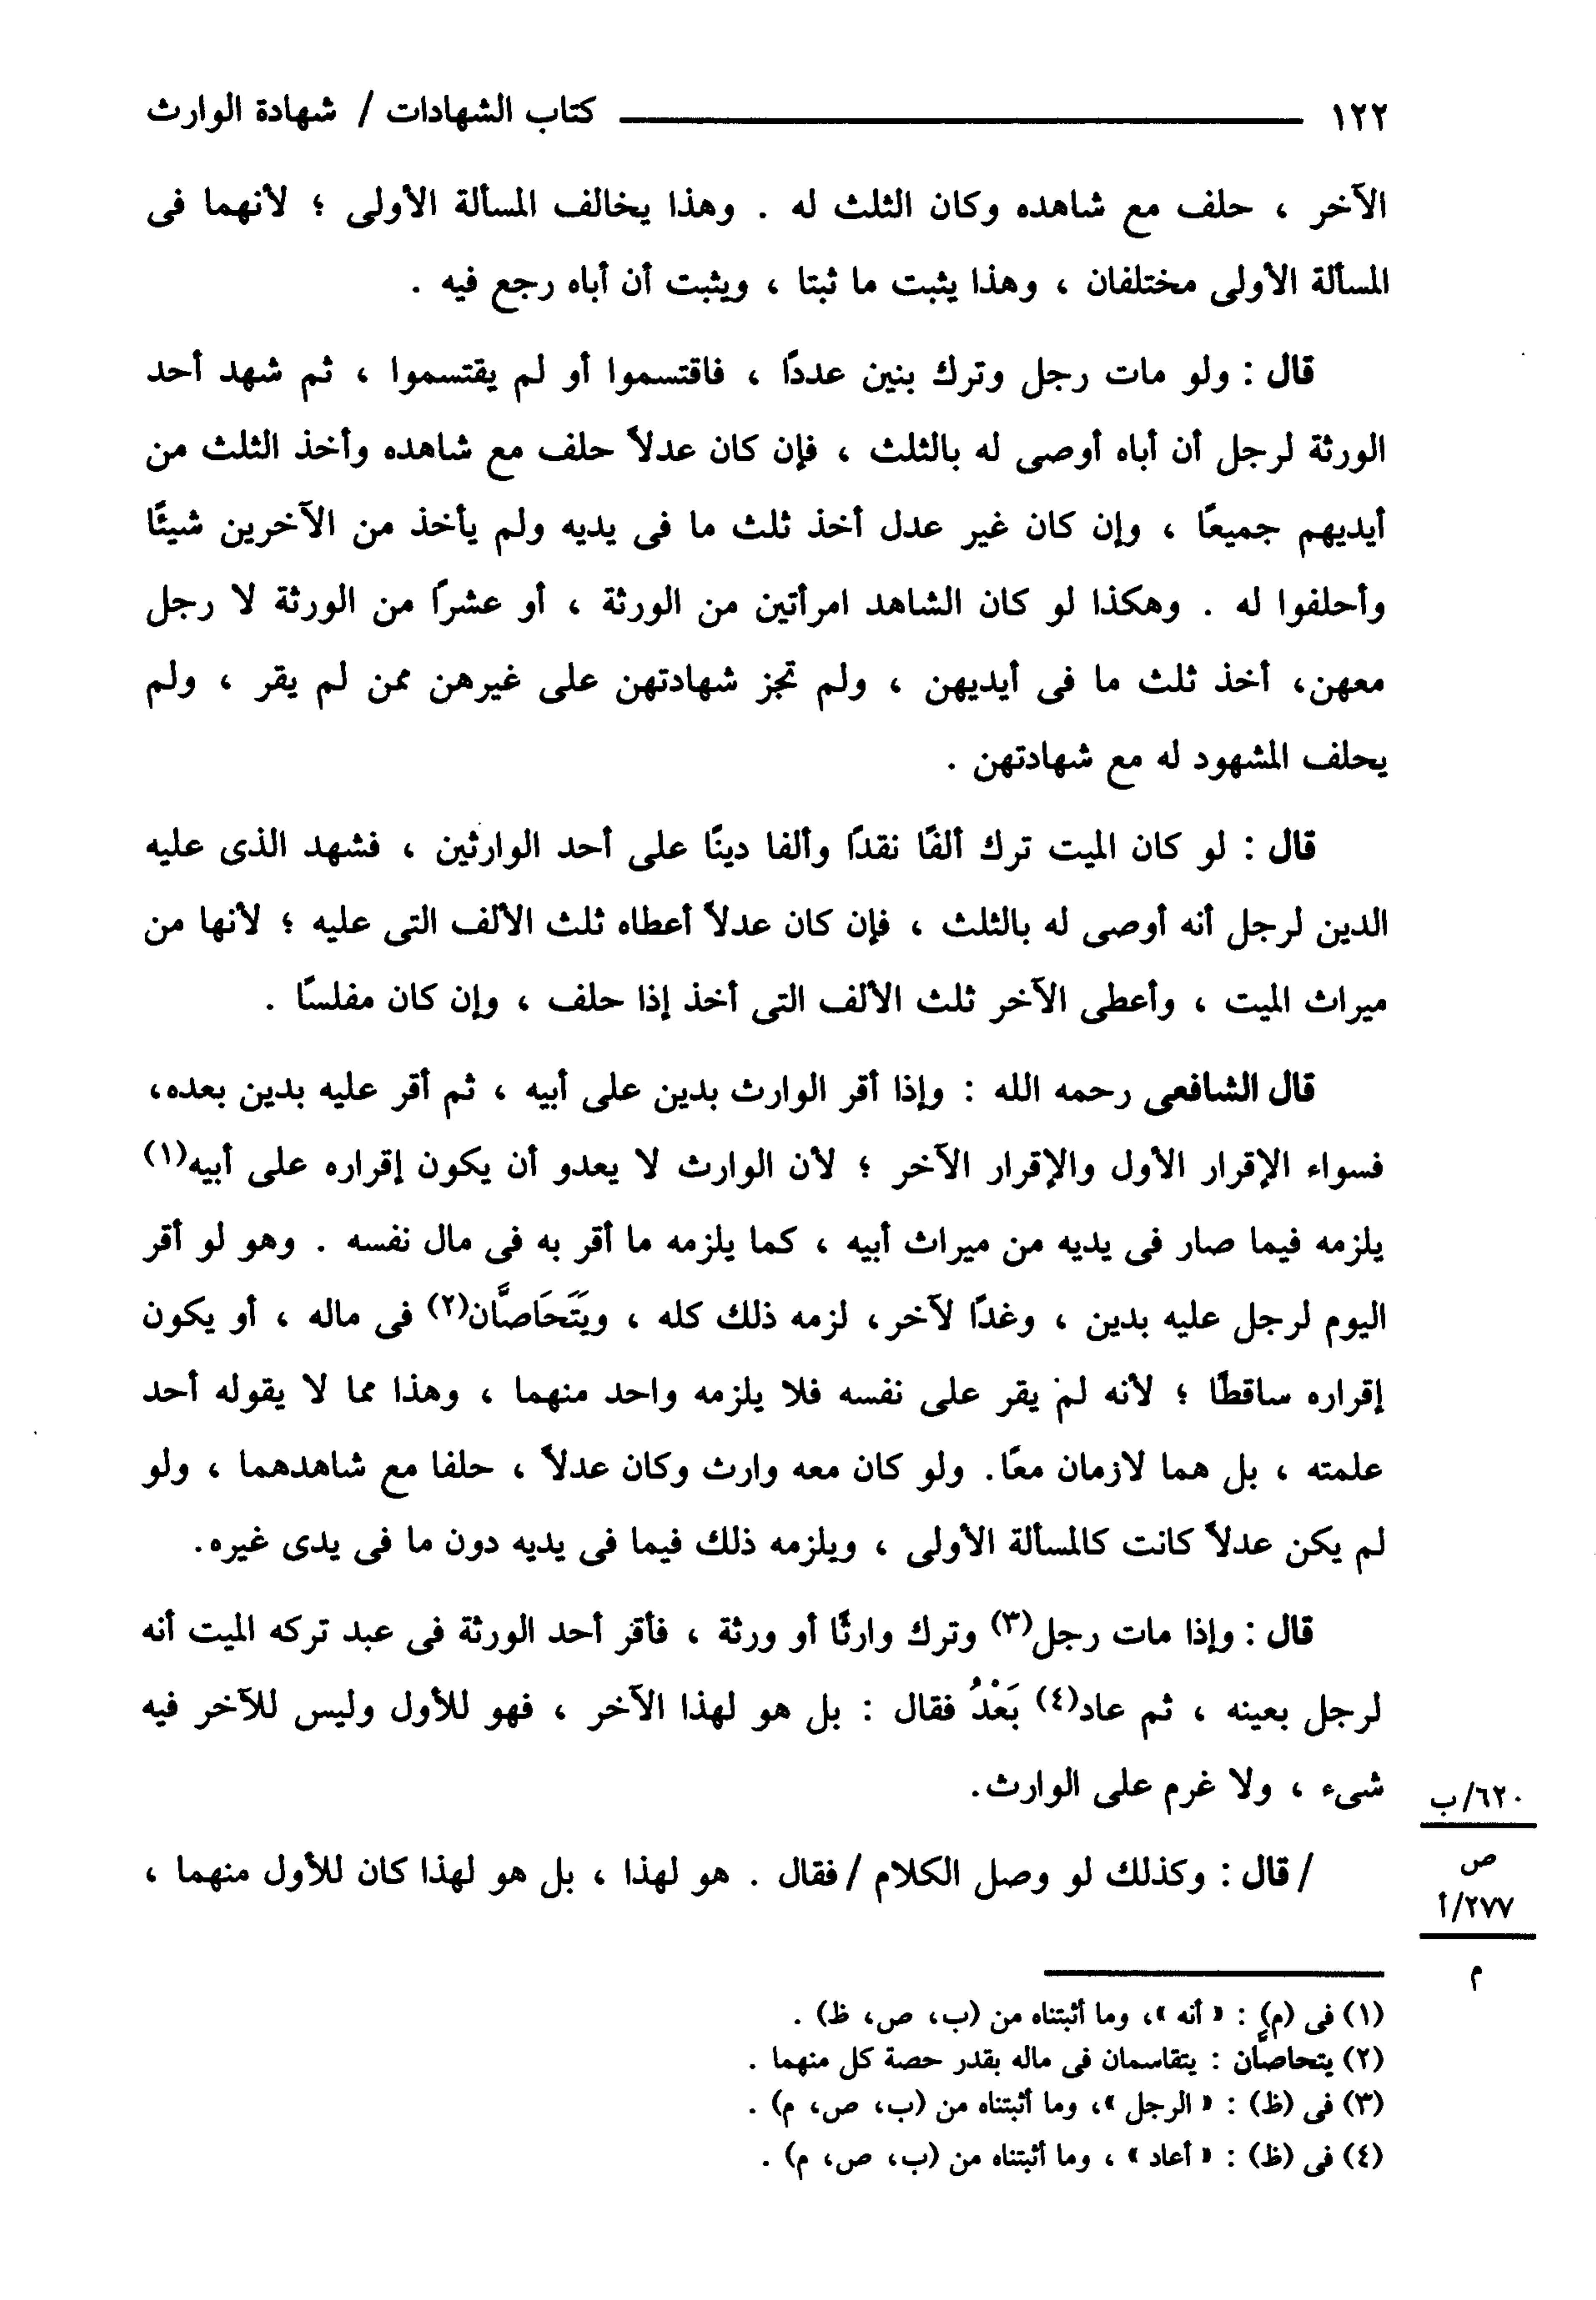 ١٢٢ كتاب الشهادات / شهادة الوارث
الآخر ، حلف مع شاهده وكان الثلث له . وهذا يخالف المسألة الأولى ؛ لأنهما فى
المسألة الأولى مختلفان ، وهذا يثبت ما ثبتا ، ويثبت أن أباه رجع فيه .
قال : ولو مات رجل وترك بنين عددًا ، فاقتسموا أو لم يقتسموا ، ثم شهد أحد
الورثة لرجل أن أباه أوصى له بالثلث ، فإن كان عدلاً حلف مع شاهده وأخذ الثلث من
أيديهم جميعًا ، وإن كان غير عدل أخذ ثلث ما فى يديه ولم يأخذ من الآخرين شيئًا
وأحلفوا له . وهكذا لو كان الشاهد امرأتين من الورثة ، أو عشرًا من الورثة لا رجل
معهن، أخذ ثلث ما فى أيديهن ، ولم تجز شهادتهن على غيرهن ممن لم يقر ، ولم
يحلف المشهود له مع شهادتهن .
قال : لو كان الميت ترك ألفًا نقدًا وألفا دينًا على أحد الوارثين ، فشهد الذى عليه
الدين لرجل أنه أوصى له بالثلث ، فإن كان عدلاً أعطاه ثلث الألف التى عليه ؛ لأنها من
ميراث الميت ، وأعطى الآخر ثلث الألف التى أخذ إذا حلف ، وإن كان مفلسًا .
قال الشافعى رحمه الله : وإذا أقر الوارث بدين على أبيه ، ثم أقر عليه بدين بعده،
فسواء الإقرار الأول والإقرار الآخر ؛ لأن الوارث لا يعدو أن يكون إقراره على أبيه(١)
يلزمه فيما صار فى يديه من ميراث أبيه ، كما يلزمه ما أقر به فى مال نفسه . وهو لو أقر
اليوم لرجل عليه بدين ، وغدًا لآخر، لزمه ذلك كله ، ويَتَحَاصَّان(٢) فى ماله ، أو يكون
إقراره ساقطًا ؛ لأنه لم يقر على نفسه فلا يلزمه واحد منهما ، وهذا مما لا يقوله أحد
علمته ، بل هما لازمان معًا. ولو كان معه وارث وكان عدلاً ، حلفا مع شاهدهما ، ولو
لم يكن عدلاً كانت كالمسألة الأولى ، ويلزمه ذلك فيما فى يديه دون ما فى يدى غيره.
قال : وإذا مات رجل(٣) وترك وارثًا أو ورثة ، فأقر أحد الورثة فى عبد تركه الميت أنه
لرجل بعينه ، ثم عاد(٤) بَعْدُ فقال : بل هو لهذا الآخر ، فهو للأول وليس للآخر فيه
شىء ، ولا غرم على الوارث.
٦٢٠/ب
ص
/ قال : وكذلك لو وصل الكلام / فقال . هو لهذا ، بل هو لهذا كان للأول منهما ،
٢٧٧/أ
م
(١) فى (م) : « أنه »، وما أثبتناه من (ب، ص، ظ) .
(٢) يتحاصَّان : يتقاسمان فى ماله بقدر حصة كل منهما .
(٣) فى (ظ) : « الرجل »، وما أثبتناه من (ب، ص، م) .
(٤) فى (ظ) : « أعاد » ، وما أثبتناه من (ب، ص، م) .